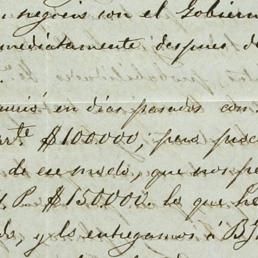 negocis con el Gobiern
mediatamente despues d
unió en dias pasados con
te $100.000; pero
de ese modo, que nos pe
P. $150.000. lo que he
do, y ls entregamos á B